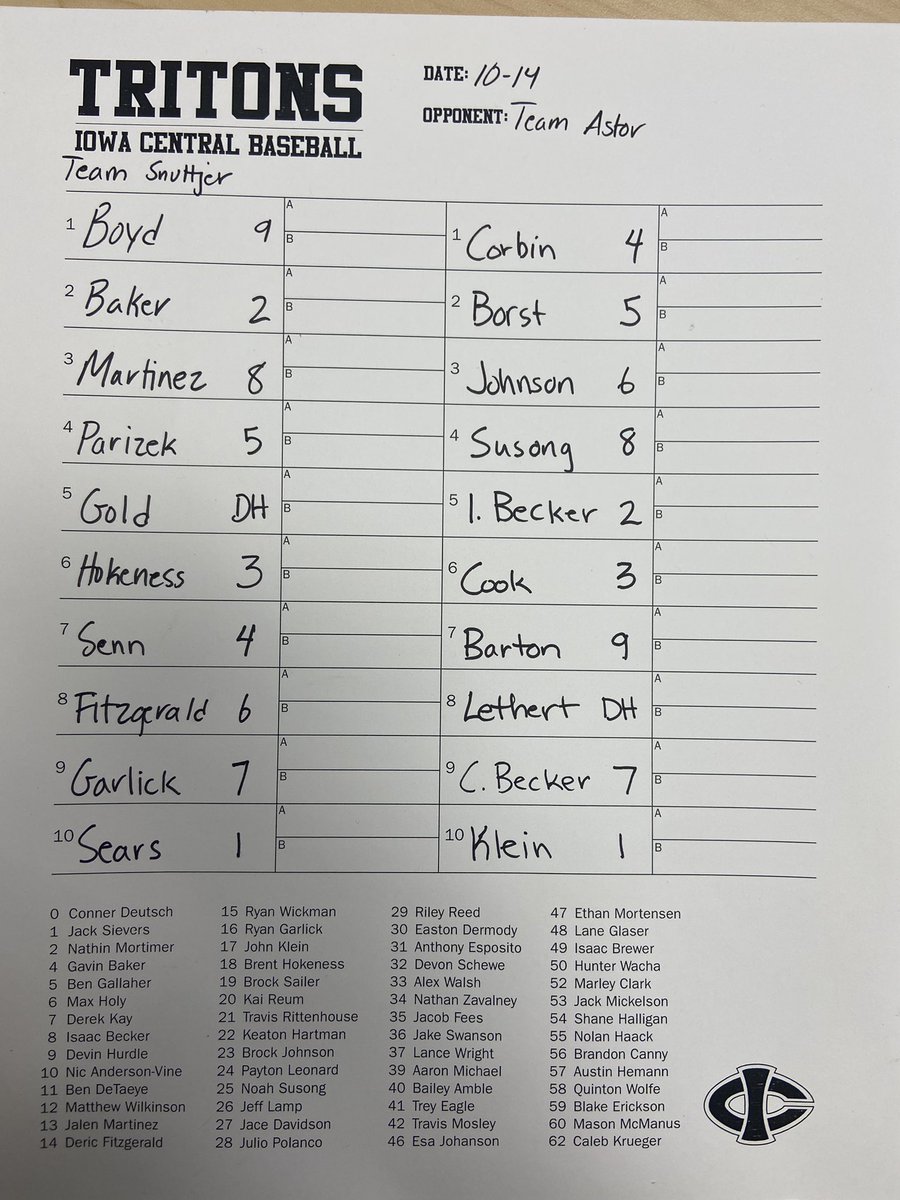 TRITONS
IOWA CENTRAL BASEBALL
DATE: 10-14
OPPONENT: Team Astor
Team Snuttjer
1 Boyd 9 A B
2 Baker 2 A B
3 Martinez 8 A B
4 Parizek 5 A B
5 Gold DH A B
6 Hokeness 3 A B
7 Senn 4 A B
8 Fitzgerald 6 A B
9 Garlick 7 A B
10 Sears 1 A B
1 Corbin 4 A B
2 Borst 5 A B
3 Johnson 6 A B
4 Susong 8 A B
5 I. Becker 2 A B
6 Cook 3 A B
7 Barton 9 A B
8 Lethert DH A B
9 C. Becker 7 A B
10 Klein 1 A B
0 Conner Deutsch
1 Jack Sievers
2 Nathin Mortimer
4 Gavin Baker
5 Ben Gallaher
6 Max Holy
7 Derek Kay
8 Isaac Becker
9 Devin Hurdle
10 Nic Anderson-Vine
11 Ben DeTaeye
12 Matthew Wilkinson
13 Jalen Martinez
14 Deric Fitzgerald
15 Ryan Wickman
16 Ryan Garlick
17 John Klein
18 Brent Hokeness
19 Brock Sailer
20 Kai Reum
21 Travis Rittenhouse
22 Keaton Hartman
23 Brock Johnson
24 Payton Leonard
25 Noah Susong
26 Jeff Lamp
27 Jace Davidson
28 Julio Polanco
29 Riley Reed
30 Easton Dermody
31 Anthony Esposito
32 Devon Schewe
33 Alex Walsh
34 Nathan Zavalney
35 Jacob Fees
36 Jake Swanson
37 Lance Wright
39 Aaron Michael
40 Bailey Amble
41 Trey Eagle
42 Travis Mosley
46 Esa Johanson
47 Ethan Mortensen
48 Lane Glaser
49 Isaac Brewer
50 Hunter Wacha
52 Marley Clark
53 Jack Mickelson
54 Shane Halligan
55 Nolan Haack
56 Brandon Canny
57 Austin Hemann
58 Quinton Wolfe
59 Blake Erickson
60 Mason McManus
62 Caleb Krueger